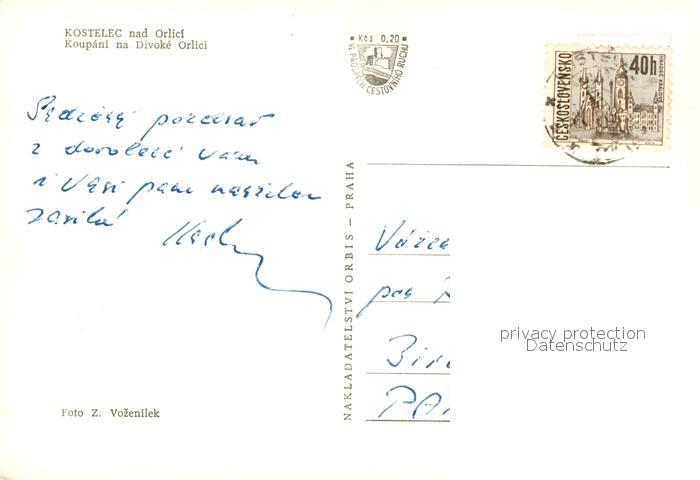 KOSTELEC nad Orlicí
Koupání na Divoké Orlici
Kčs 0,20
VE PROSPĚCH CESTOVNÍHO RUCHU
ČESKOSLOVENSKO
40h
HRADEC KRÁLOVÉ
Srdečný pozdrav
z dovolené Vám
i Vaší paní manželce
zasílá
NAKLADATELSTVÍ ORBIS — PRAHA
Váže
pan
privacy protection
Datenschutz
Foto Z. Voženílek